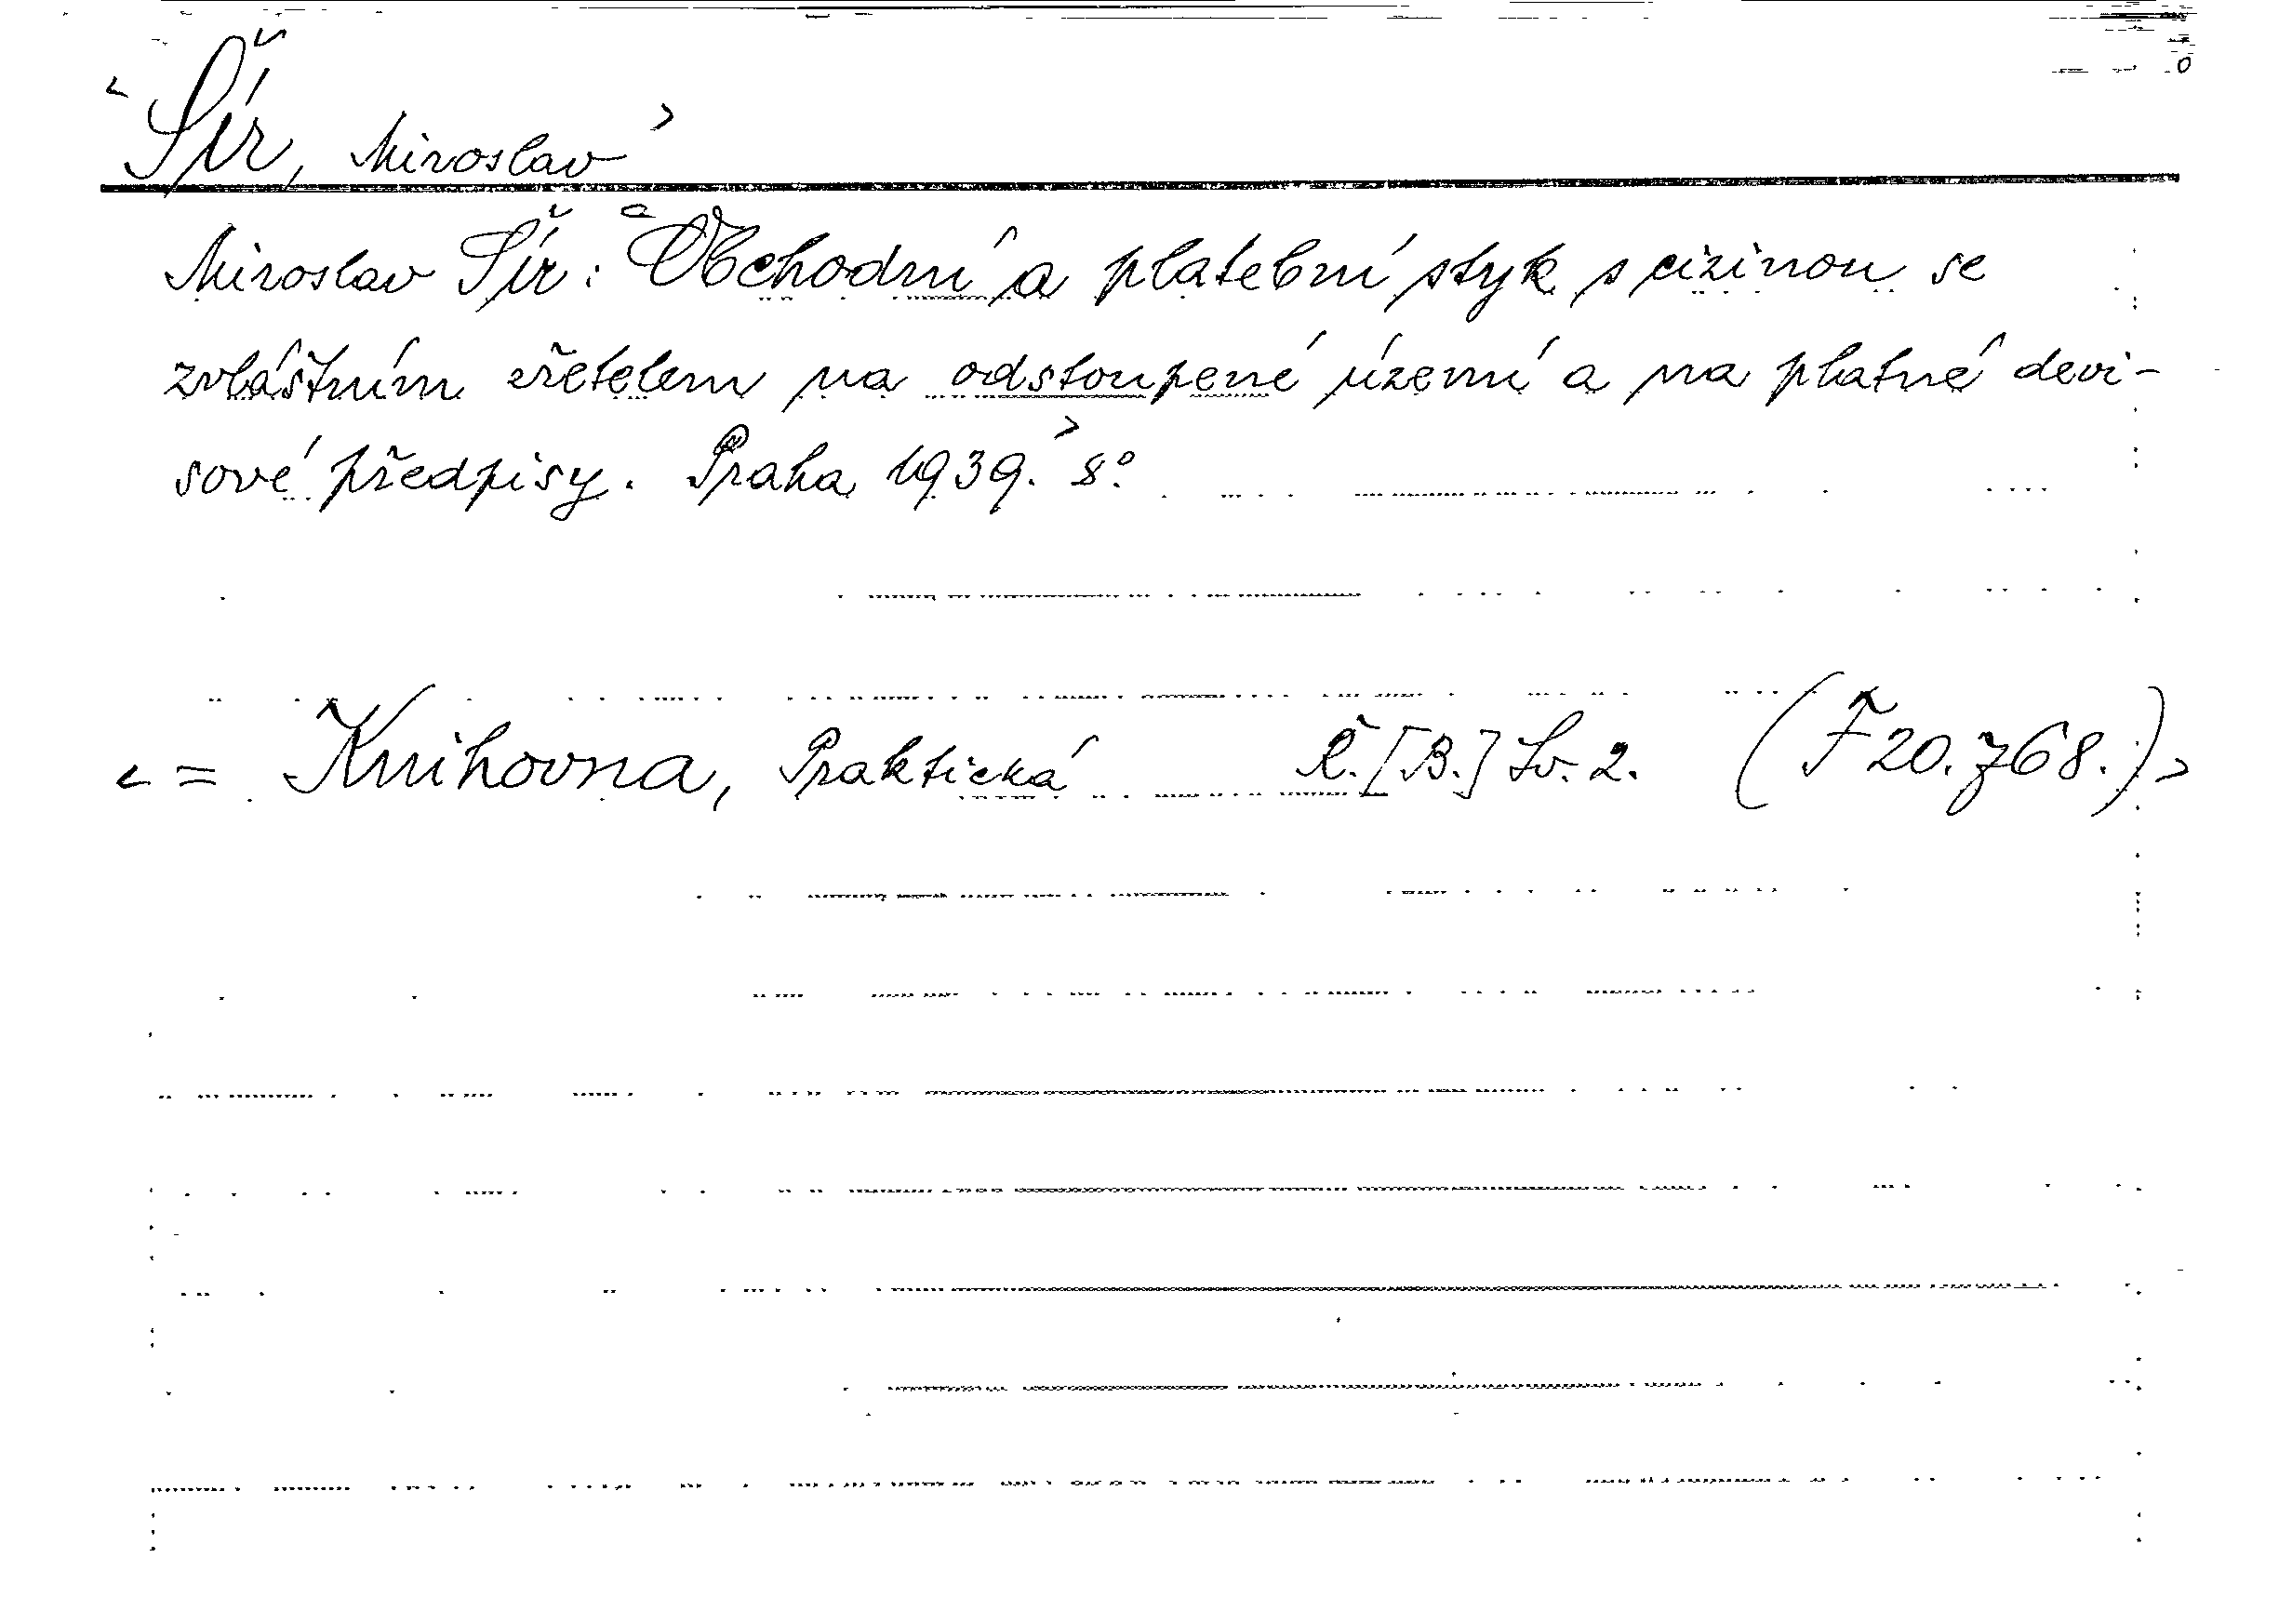 < Šír, Miroslav >
Miroslav Šír: < Obchodní a platební styk s cizinou se
zvláštním zřetelem na odstoupené území a na platné devi-
sové předpisy. Praha 1939. > 8°.
< = Knihovna, Praktická Ř. [B.] Sv. 2. (F 20.768.) >